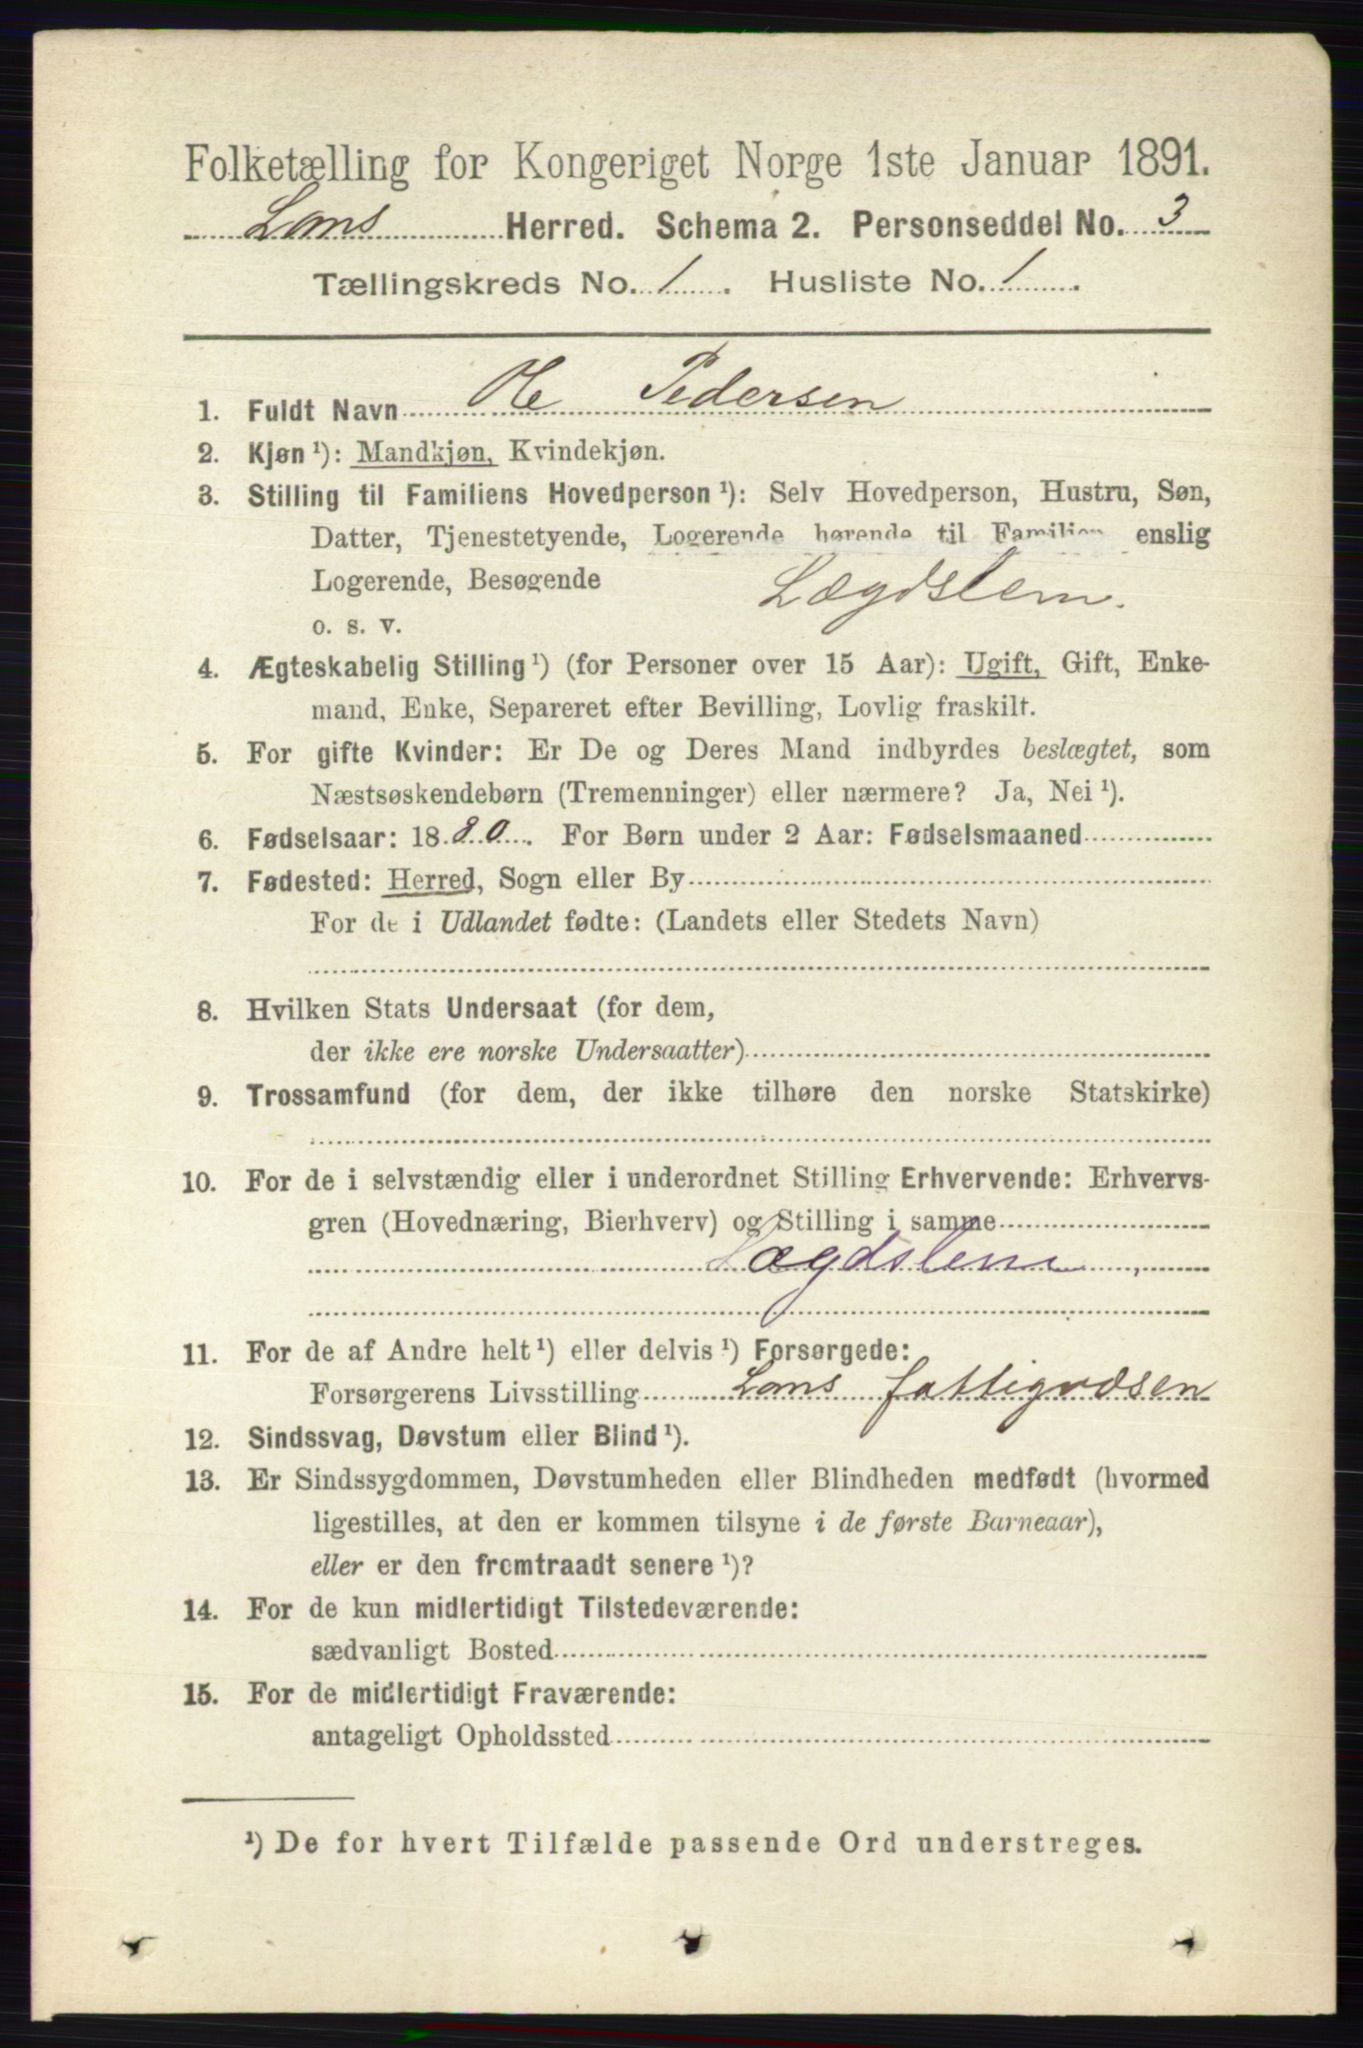 Folketælling for Kongeriget Norge 1ste Januar 1891.
Loms Herred. Schema 2. Personseddel No. 3
Tællingskreds No. 1. Husliste No. 1.
1. Fuldt Navn Ole Pedersen
2. Kjøn ¹): Mandkjøn, Kvindekjøn.
3. Stilling til Familiens Hovedperson ¹): Selv Hovedperson, Hustru, Søn,
Datter, Tjenestetyende, Logerende hørende til Familien enslig
Logerende, Besøgende Lægdslem.
o. s. v.
4. Ægteskabelig Stilling ¹) (for Personer over 15 Aar): Ugift, Gift, Enke-
mand, Enke, Separeret efter Bevilling, Lovlig fraskilt.
5. For gifte Kvinder: Er De og Deres Mand indbyrdes beslægtet, som
Næstsøskendebørn (Tremenninger) eller nærmere? Ja, Nei ¹).
6. Fødselsaar: 1880. For Børn under 2 Aar: Fødselsmaaned
7. Fødested: Herred, Sogn eller By
For de i Udlandet fødte: (Landets eller Stedets Navn)
8. Hvilken Stats Undersaat (for dem,
der ikke ere norske Undersaatter)
9. Trossamfund (for dem, der ikke tilhøre den norske Statskirke)
10. For de i selvstændig eller i underordnet Stilling Erhvervende: Erhvervs-
gren (Hovednæring, Bierhverv) og Stilling i samme
Lægdslem,
11. For de af Andre helt ¹) eller delvis ¹) Forsørgede:
Forsørgerens Livsstilling Loms fattigvæsen
12. Sindssvag, Døvstum eller Blind ¹).
13. Er Sindssygdommen, Døvstumheden eller Blindheden medfødt (hvormed
ligestilles, at den er kommen tilsyne i de første Barneaar),
eller er den fremtraadt senere ¹)?
14. For de kun midlertidigt Tilstedeværende:
sædvanligt Bosted
15. For de midlertidigt Fraværende:
antageligt Opholdssted
¹) De for hvert Tilfælde passende Ord understreges.